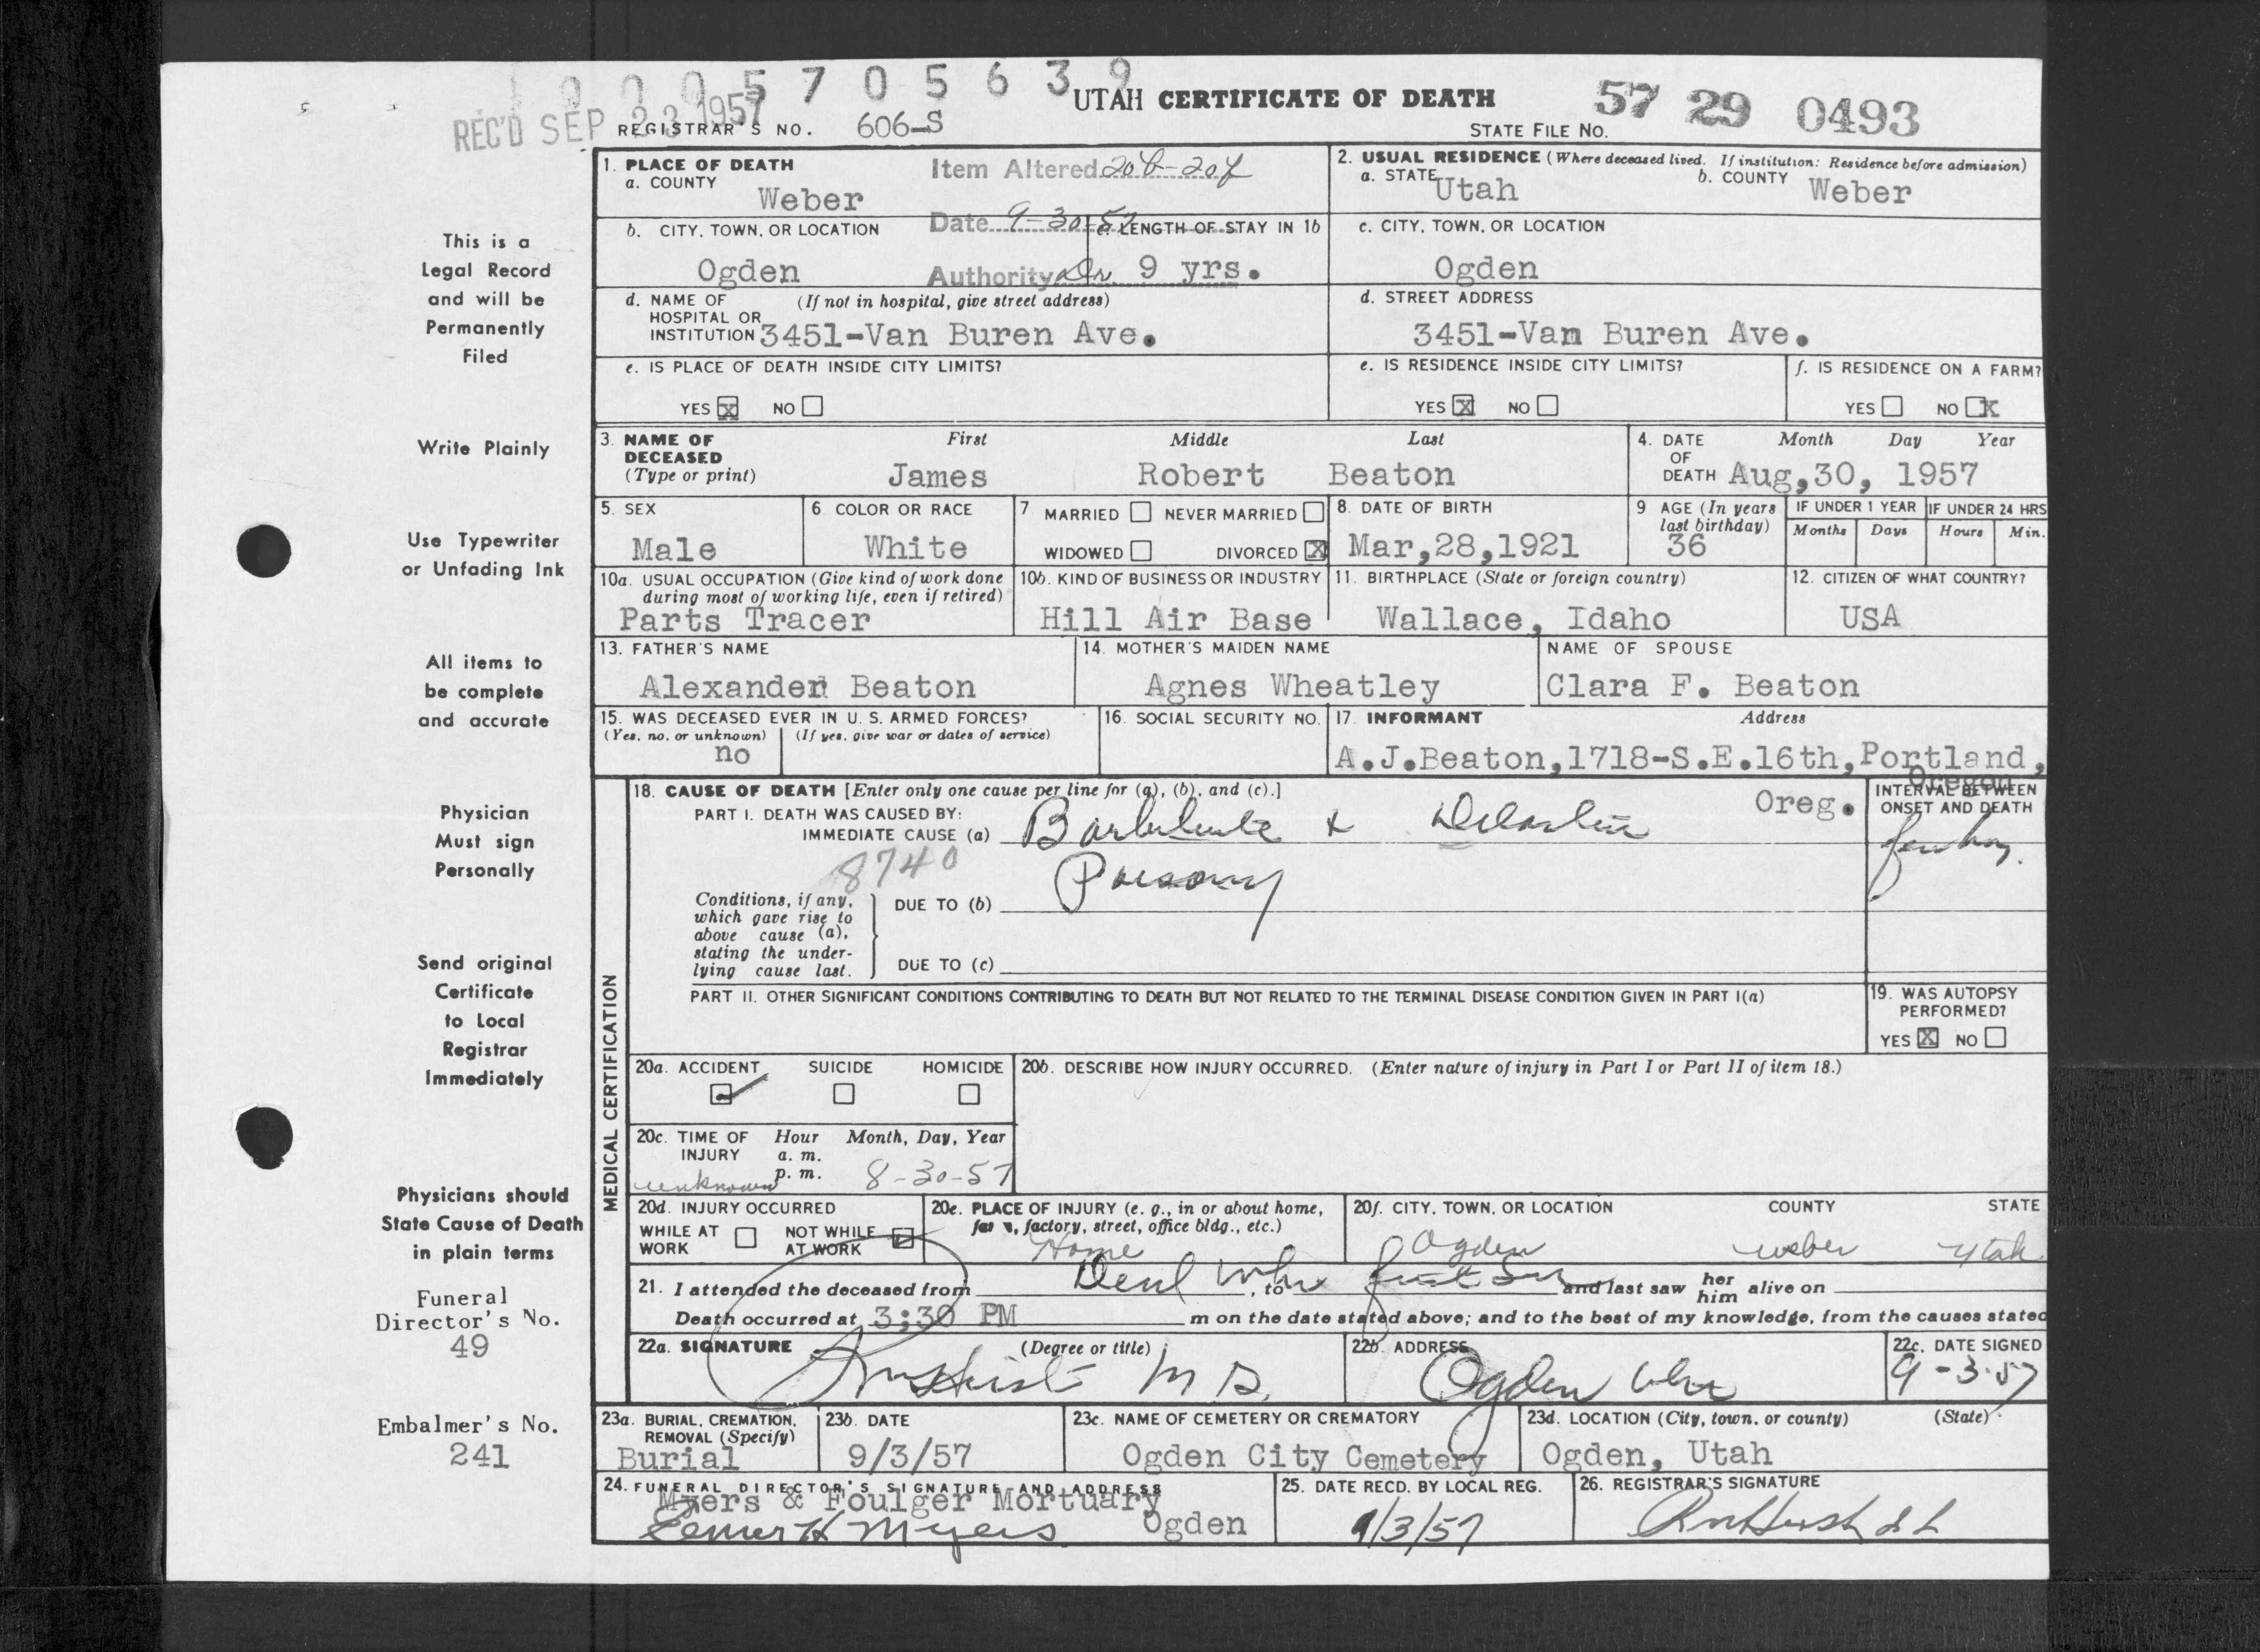 1 0 0 0 5 7 0 5 6 3 9
REC'D SEP 23 1957
UTAH CERTIFICATE OF DEATH
57 29 0493
REGISTRAR'S NO. 606-S
STATE FILE NO.
1. PLACE OF DEATH
Item Altered 20b-20f
a. COUNTY
Weber
Date 9-30-57
b. CITY, TOWN, OR LOCATION
Ogden
Authority Dr
c. LENGTH OF STAY IN 1b
9 yrs.
2. USUAL RESIDENCE (Where deceased lived. If institution: Residence before admission)
a. STATE Utah
b. COUNTY Weber
c. CITY, TOWN, OR LOCATION
Ogden
d. NAME OF (If not in hospital, give street address)
HOSPITAL OR
INSTITUTION 3451-Van Buren Ave.
d. STREET ADDRESS
3451-Van Buren Ave.
e. IS PLACE OF DEATH INSIDE CITY LIMITS?
YES X NO
e. IS RESIDENCE INSIDE CITY LIMITS?
YES X NO
f. IS RESIDENCE ON A FARM?
YES NO X
3. NAME OF DECEASED
(Type or print)
First Middle Last
James Robert Beaton
4. DATE OF DEATH
Month Day Year
Aug,30, 1957
5. SEX
Male
6. COLOR OR RACE
White
7. MARRIED NEVER MARRIED
WIDOWED DIVORCED X
8. DATE OF BIRTH
Mar,28,1921
9 AGE (In years last birthday)
36
IF UNDER 1 YEAR
Months Days
IF UNDER 24 HRS
Hours Min.
10a. USUAL OCCUPATION (Give kind of work done
during most of working life, even if retired)
Parts Tracer
10b. KIND OF BUSINESS OR INDUSTRY
Hill Air Base
11. BIRTHPLACE (State or foreign country)
Wallace, Idaho
12. CITIZEN OF WHAT COUNTRY?
USA
13. FATHER'S NAME
Alexander Beaton
14. MOTHER'S MAIDEN NAME
Agnes Wheatley
NAME OF SPOUSE
Clara F. Beaton
15. WAS DECEASED EVER IN U. S. ARMED FORCES?
(Yes, no, or unknown) (If yes, give war or dates of service)
no
16. SOCIAL SECURITY NO.
17. INFORMANT Address
A.J.Beaton,1718-S.E.16th,Portland,
Oregon
Oreg.
MEDICAL CERTIFICATION
18. CAUSE OF DEATH [Enter only one cause per line for (a), (b), and (c).]
PART I. DEATH WAS CAUSED BY:
IMMEDIATE CAUSE (a) Barbiturate &
8740
Poisoning
INTERVAL BETWEEN
ONSET AND DEATH
Conditions, if any,
which gave rise to
above cause (a),
stating the under-
lying cause last.
DUE TO (b)
DUE TO (c)
PART II. OTHER SIGNIFICANT CONDITIONS CONTRIBUTING TO DEATH BUT NOT RELATED TO THE TERMINAL DISEASE CONDITION GIVEN IN PART I(a)
19. WAS AUTOPSY
PERFORMED?
YES X NO
20a. ACCIDENT SUICIDE HOMICIDE
20b. DESCRIBE HOW INJURY OCCURRED. (Enter nature of injury in Part I or Part II of item 18.)
20c. TIME OF INJURY
Hour Month, Day, Year
a. m.
p. m.
unknown 8-30-57
20d. INJURY OCCURRED
WHILE AT WORK NOT WHILE AT WORK
20e. PLACE OF INJURY (e. g., in or about home,
farm, factory, street, office bldg., etc.)
Home
20f. CITY, TOWN, OR LOCATION COUNTY STATE
Ogden Weber Utah
21. I attended the deceased from Dead when first seen, to and last saw her him alive on
Death occurred at 3;30 PM m on the date stated above; and to the best of my knowledge, from the causes stated
22a. SIGNATURE (Degree or title)
M D.
22b. ADDRESS
Ogden
22c. DATE SIGNED
9-3-57
23a. BURIAL, CREMATION,
REMOVAL (Specify)
Burial
23b. DATE
9/3/57
23c. NAME OF CEMETERY OR CREMATORY
Ogden City Cemetery
23d. LOCATION (City, town, or county) (State)
Ogden, Utah
24. FUNERAL DIRECTOR'S SIGNATURE AND ADDRESS
Myers & Foulger Mortuary
Elmer H Myers Ogden
25. DATE RECD. BY LOCAL REG.
9/3/57
26. REGISTRAR'S SIGNATURE
This is a
Legal Record
and will be
Permanently
Filed
Write Plainly
Use Typewriter
or Unfading Ink
All items to
be complete
and accurate
Physician
Must sign
Personally
Send original
Certificate
to Local
Registrar
Immediately
Physicians should
State Cause of Death
in plain terms
Funeral
Director's No.
49
Embalmer's No.
241